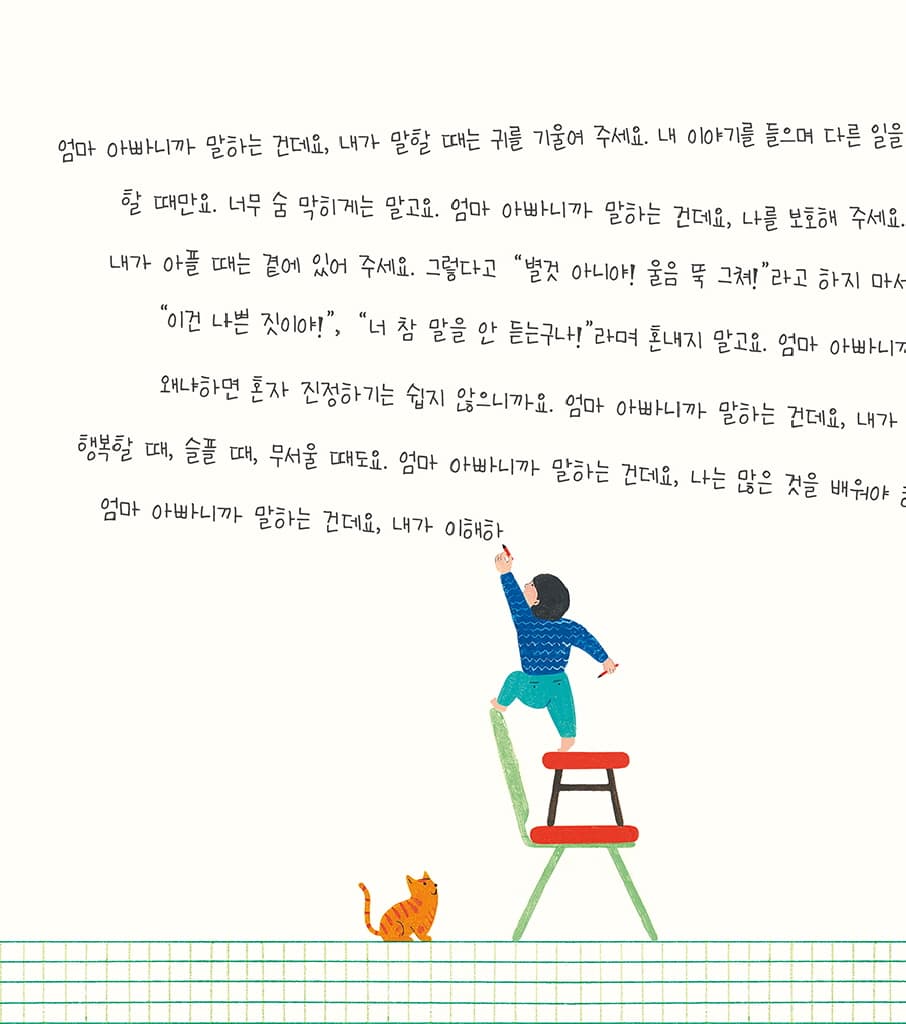 엄마 아빠니까 말하는 건데요, 내가 말할 때는 귀를 기울여 주세요. 내 이야기를 들으며 다른 일을
할 때만요. 너무 숨 막히게는 말고요. 엄마 아빠니까 말하는 건데요, 나를 보호해 주세요.
내가 아플 때는 곁에 있어 주세요. 그렇다고 “별것 아니야! 울음 뚝 그쳐!”라고 하지 마세
“이건 나쁜 짓이야!”, “너 참 말을 안 듣는구나!”라며 혼내지 말고요. 엄마 아빠니까
왜냐하면 혼자 진정하기는 쉽지 않으니까요. 엄마 아빠니까 말하는 건데요, 내가
행복할 때, 슬플 때, 무서울 때도요. 엄마 아빠니까 말하는 건데요, 나는 많은 것을 배워야
엄마 아빠니까 말하는 건데요, 내가 이해하